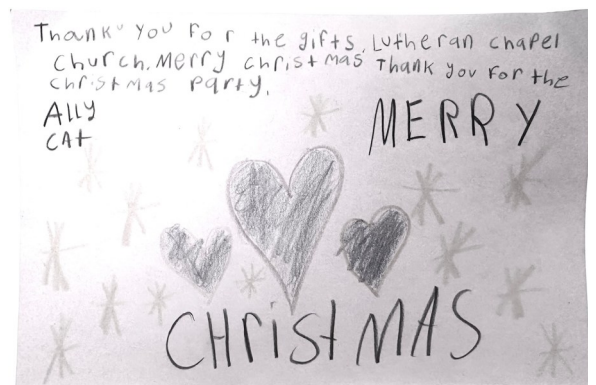 Thank you For the gifts, Lutheran chapel
church. Merry christmas Thank you For the
christmas party.
ALLy
CAt
MERRY
CHristMAS